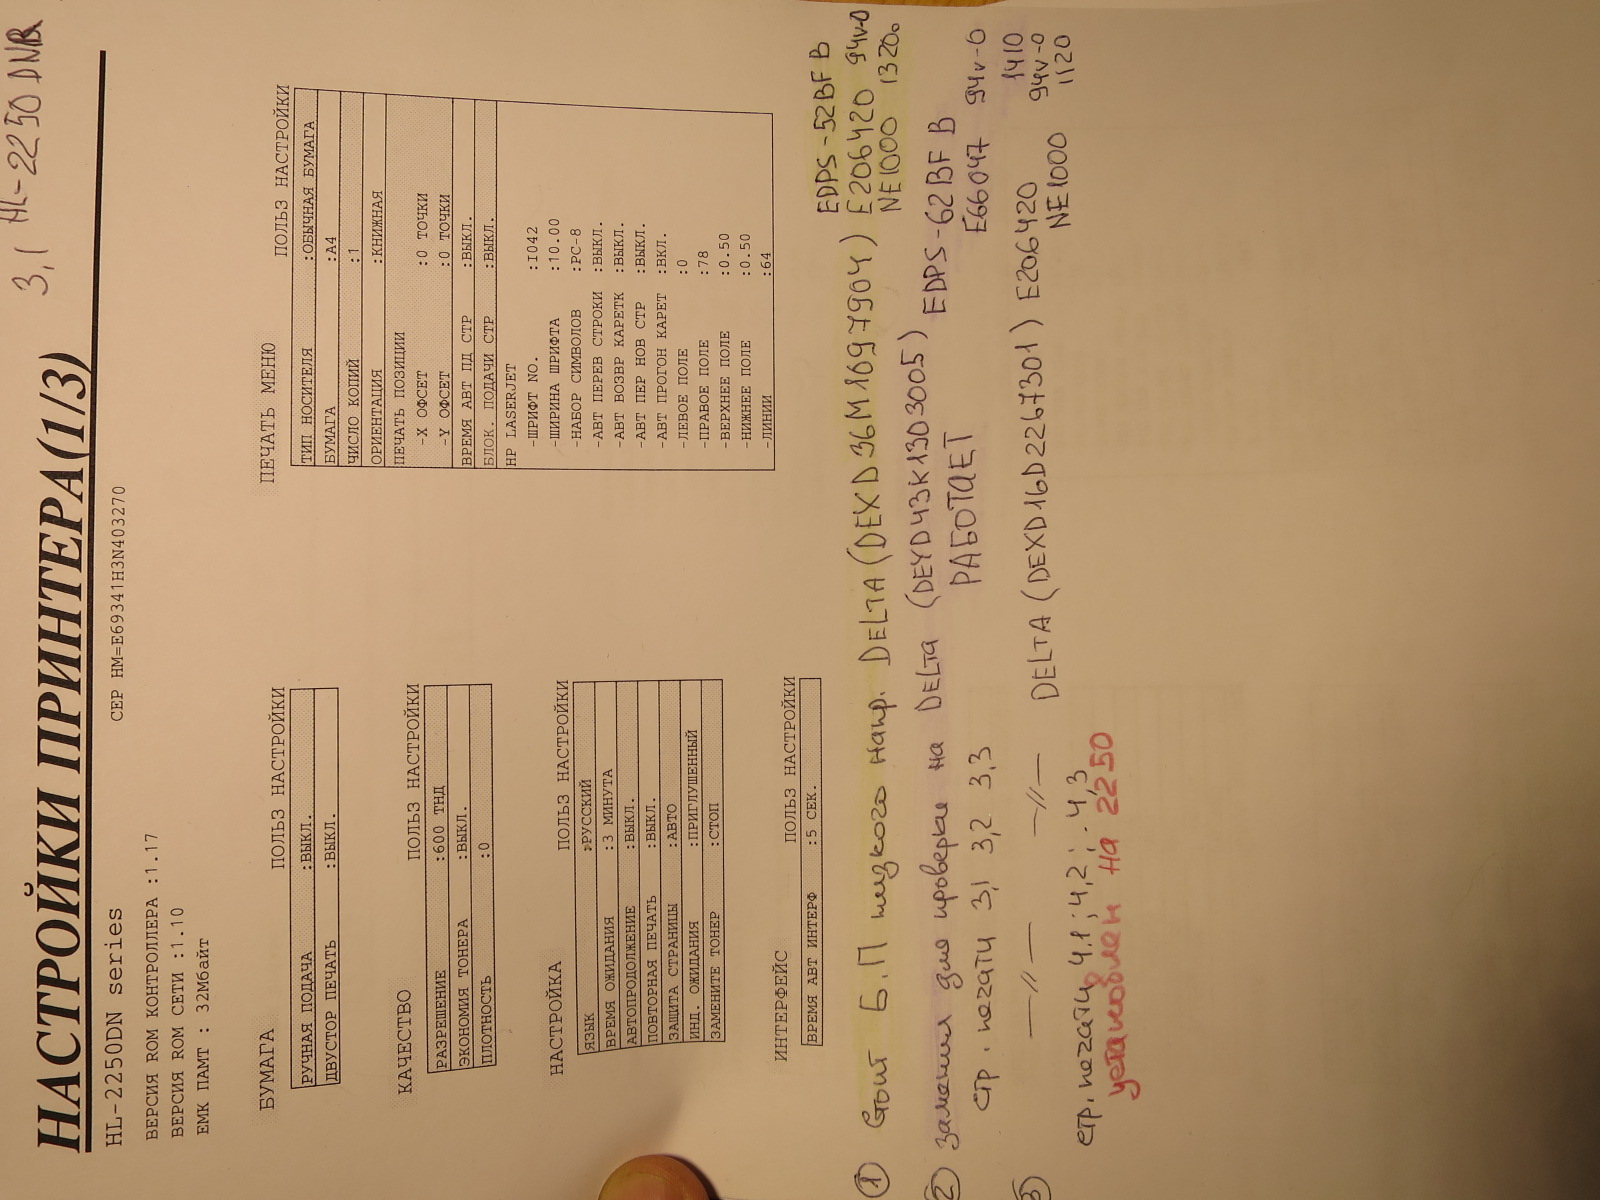 3,1 HL-2250 DNR
НАСТРОЙКИ ПРИНТЕРА(1/3)
HL-2250DN series
СЕР НМ=E69341H3N403270
ВЕРСИЯ ROM КОНТРОЛЛЕРА :1.17
ВЕРСИЯ ROM СЕТИ :1.10
ЕМК ПАМТ : 32Мбайт
БУМАГА ПОЛЬЗ НАСТРОЙКИ
РУЧНАЯ ПОДАЧА :ВЫКЛ.
ДВУСТОР ПЕЧАТЬ :ВЫКЛ.
КАЧЕСТВО ПОЛЬЗ НАСТРОЙКИ
РАЗРЕШЕНИЕ :600 ТНД
ЭКОНОМИЯ ТОНЕРА :ВЫКЛ.
ПЛОТНОСТЬ :0
НАСТРОЙКА ПОЛЬЗ НАСТРОЙКИ
ЯЗЫК :РУССКИЙ
ВРЕМЯ ОЖИДАНИЯ :3 МИНУТА
АВТОПРОДОЛЖЕНИЕ :ВЫКЛ.
ПОВТОРНАЯ ПЕЧАТЬ :ВЫКЛ.
ЗАЩИТА СТРАНИЦЫ :АВТО
ИНД. ОЖИДАНИЯ :ПРИГЛУШЕННЫЙ
ЗАМЕНИТЕ ТОНЕР :СТОП
ИНТЕРФЕЙС ПОЛЬЗ НАСТРОЙКИ
ВРЕМЯ АВТ ИНТЕРФ :5 СЕК.
ПЕЧАТЬ МЕНЮ ПОЛЬЗ НАСТРОЙКИ
ТИП НОСИТЕЛЯ :ОБЫЧНАЯ БУМАГА
БУМАГА :A4
ЧИСЛО КОПИЙ :1
ОРИЕНТАЦИЯ :КНИЖНАЯ
ПЕЧАТЬ ПОЗИЦИИ
-X ОФСЕТ :0 ТОЧКИ
-Y ОФСЕТ :0 ТОЧКИ
ВРЕМЯ АВТ ПД СТР :ВЫКЛ.
БЛОК. ПОДАЧИ СТР :ВЫКЛ.
HP LASERJET
-ШРИФТ NO. :I042
-ШИРИНА ШРИФТА :10.00
-НАБОР СИМВОЛОВ :PC-8
-АВТ ПЕРЕВ СТРОКИ :ВЫКЛ.
-АВТ ВОЗВР КАРЕТК :ВЫКЛ.
-АВТ ПЕР НОВ СТР :ВЫКЛ.
-АВТ ПРОГОН КАРЕТ :ВКЛ.
-ЛЕВОЕ ПОЛЕ :0
-ПРАВОЕ ПОЛЕ :78
-ВЕРХНЕЕ ПОЛЕ :0.50
-НИЖНЕЕ ПОЛЕ :0.50
-ЛИНИИ :64
EDPS-52BF B
① Стоит Б.П низкого напр. DELTA (DEXD36M1097904) E206420 94v-0
NE1000 1320
② заменил для проверки на DELTA (DEYD43K1303005) EDPS-62BF B
стр. печати 3,1 3,2 3,3 РАБОТАЕТ E66047 94v-0
③ —//— —//— DELTA (DEXD16D2267301) E206420 1410
94v-0
NE1000 1120
стр. печати 4,1; 4,2; 4,3
установлен на 2250